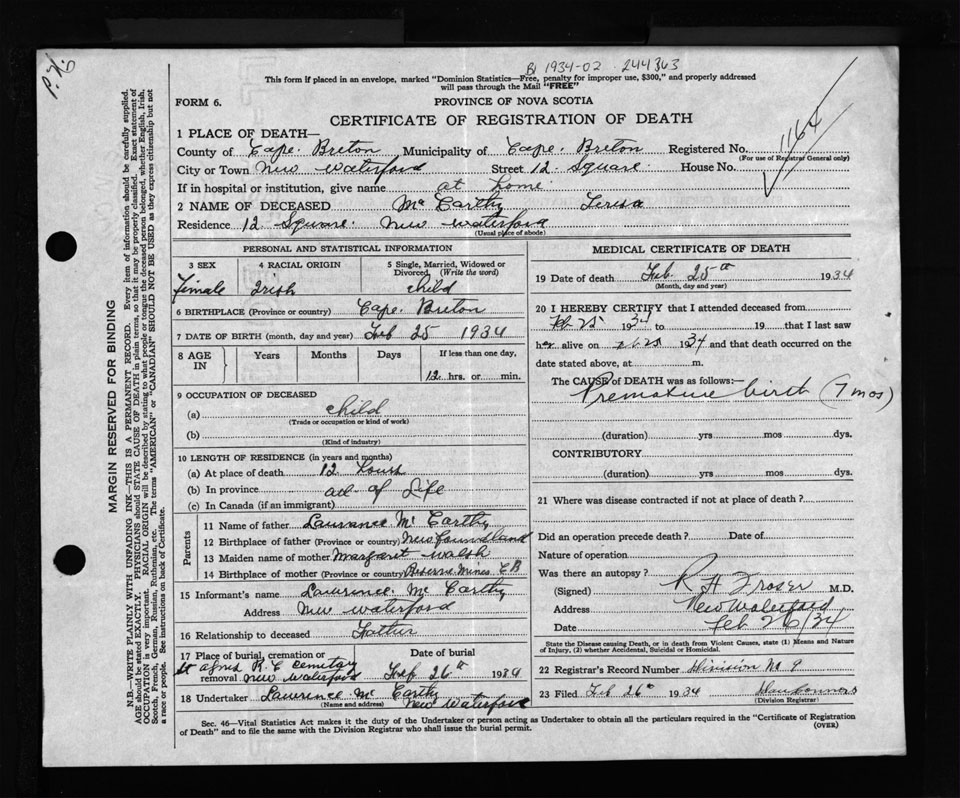 P.X.
B 1934-02 244363
This form if placed in an envelope, marked "Dominion Statistics—Free, penalty for improper use, $300," and properly addressed
will pass through the Mail "FREE"
FORM 6.
PROVINCE OF NOVA SCOTIA
CERTIFICATE OF REGISTRATION OF DEATH
1164
1 PLACE OF DEATH—
County of Cape Breton Municipality of Cape Breton Registered No.
(For use of Registrar General only)
City or Town New Waterford Street 12 Square House No.
If in hospital or institution, give name at home
2 NAME OF DECEASED Mc Carthy Teresa
Residence 12 Square New Waterford
(Usual place of abode)
PERSONAL AND STATISTICAL INFORMATION
3 SEX 4 RACIAL ORIGIN 5 Single, Married, Widowed or
Divorced, (Write the word)
Female Irish child
6 BIRTHPLACE (Province or country) Cape Breton
7 DATE OF BIRTH (month, day and year) Feb 25 1934
8 AGE IN Years Months Days If less than one day,
12 hrs. or min.
9 OCCUPATION OF DECEASED
(a) child
(Trade or occupation or kind of work)
(b)
(Kind of industry)
10 LENGTH OF RESIDENCE (in years and months)
(a) At place of death 12 hours
(b) In province all of Life
(c) In Canada (if an immigrant)
Parents
11 Name of father Laurance Mc Carthy
12 Birthplace of father (Province or country) Newfoundland
13 Maiden name of mother Margaret Walsh
14 Birthplace of mother (Province or country) Reserve Mines C B
15 Informant's name Lawrence Mc Carthy
Address New Waterford
16 Relationship to deceased Father
17 Place of burial, cremation or Date of burial
St Agnes R. C Cemetary
removal New Waterford Feb 26th 1934
18 Undertaker Lawrence Mc Carthy
(Name and address) New Waterford
MEDICAL CERTIFICATE OF DEATH
19 Date of death Feb. 25th 1934
(Month, day and year)
20 I HEREBY CERTIFY that I attended deceased from
Feb 25 1934 to 19 that I last saw
her alive on Feb 25 1934 and that death occurred on the
date stated above, at m.
The CAUSE of DEATH was as follows:—
Premature birth (7 mos)
(duration) yrs mos dys.
CONTRIBUTORY
(duration) yrs mos dys.
21 Where was disease contracted if not at place of death?
Did an operation precede death? Date of
Nature of operation
Was there an autopsy?
(Signed) R H Fraser M.D.
Address New Waterford
Date Feb 26/34
State the Disease causing Death, or in death from Violent Causes, state (1) Means and Nature
of Injury, (2) whether Accidental, Suicidal or Homicidal.
22 Registrar's Record Number Division No 9
23 Filed Feb 26th 1934
(Division Registrar)
Sec. 46—Vital Statistics Act makes it the duty of the Undertaker or person acting as Undertaker to obtain all the particulars required in the "Certificate of Registration
of Death" and to file the same with the Division Registrar who shall issue the burial permit.
(OVER)
MARGIN RESERVED FOR BINDING
N.B.—WRITE PLAINLY WITH UNFADING INK—THIS IS A PERMANENT RECORD. Every item of information should be carefully supplied.
AGE should be stated EXACTLY. PHYSICIANS should STATE CAUSE OF DEATH in plain terms, so that it may be properly classified. Exact statement of
OCCUPATION is very important. RACIAL ORIGIN will be described by stating to what people or tongue the deceased person belonged, whether English, Irish,
Scotch, French, German, Russian, Ruthenian, etc. The terms "AMERICAN" or "CANADIAN" SHOULD NOT BE USED as they express citizenship but not
a race or people. See instructions on back of Certificate.